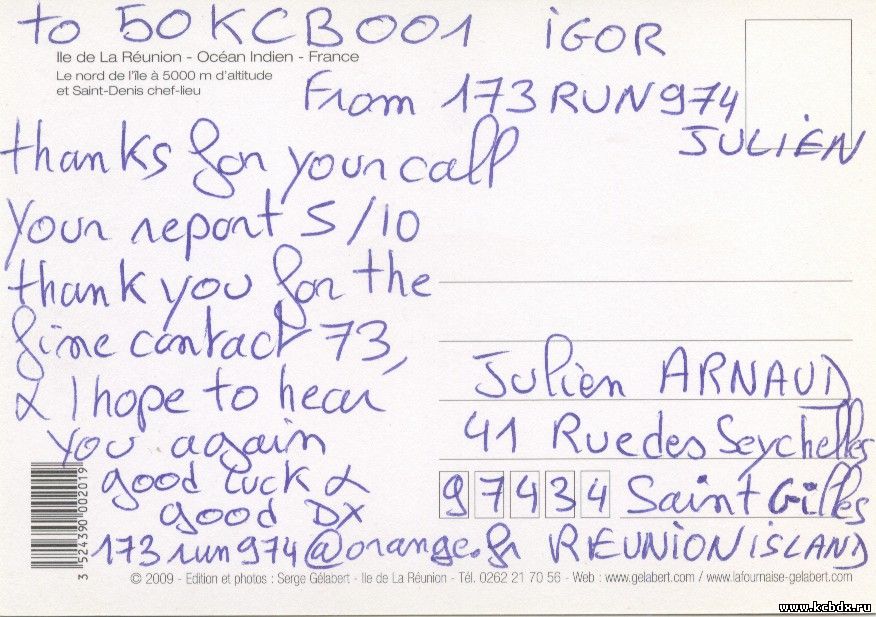 to 50KCB001 iGOR
Ile de La Réunion - Océan Indien - France
Le nord de l'île à 5000 m d'altitude
et Saint-Denis chef-lieu
From 173RUN974
JULiEN
thanks for your call
Your report 5/10
thank you for the
fine contact 73,
& I hope to hear
you again
good luck &
good DX
173run974@orange.fr
Juliен ARNAUD
41 Rue des Seychelles
97434 Saint Gilles
REUNION iSLAND
3 524390 002019
© 2009 - Edition et photos : Serge Gélabert - Ile de La Réunion - Tél. 0262 21 70 56 - Web : www.gelabert.com / www.lafournaise-gelabert.com
www.kcbdx.ru